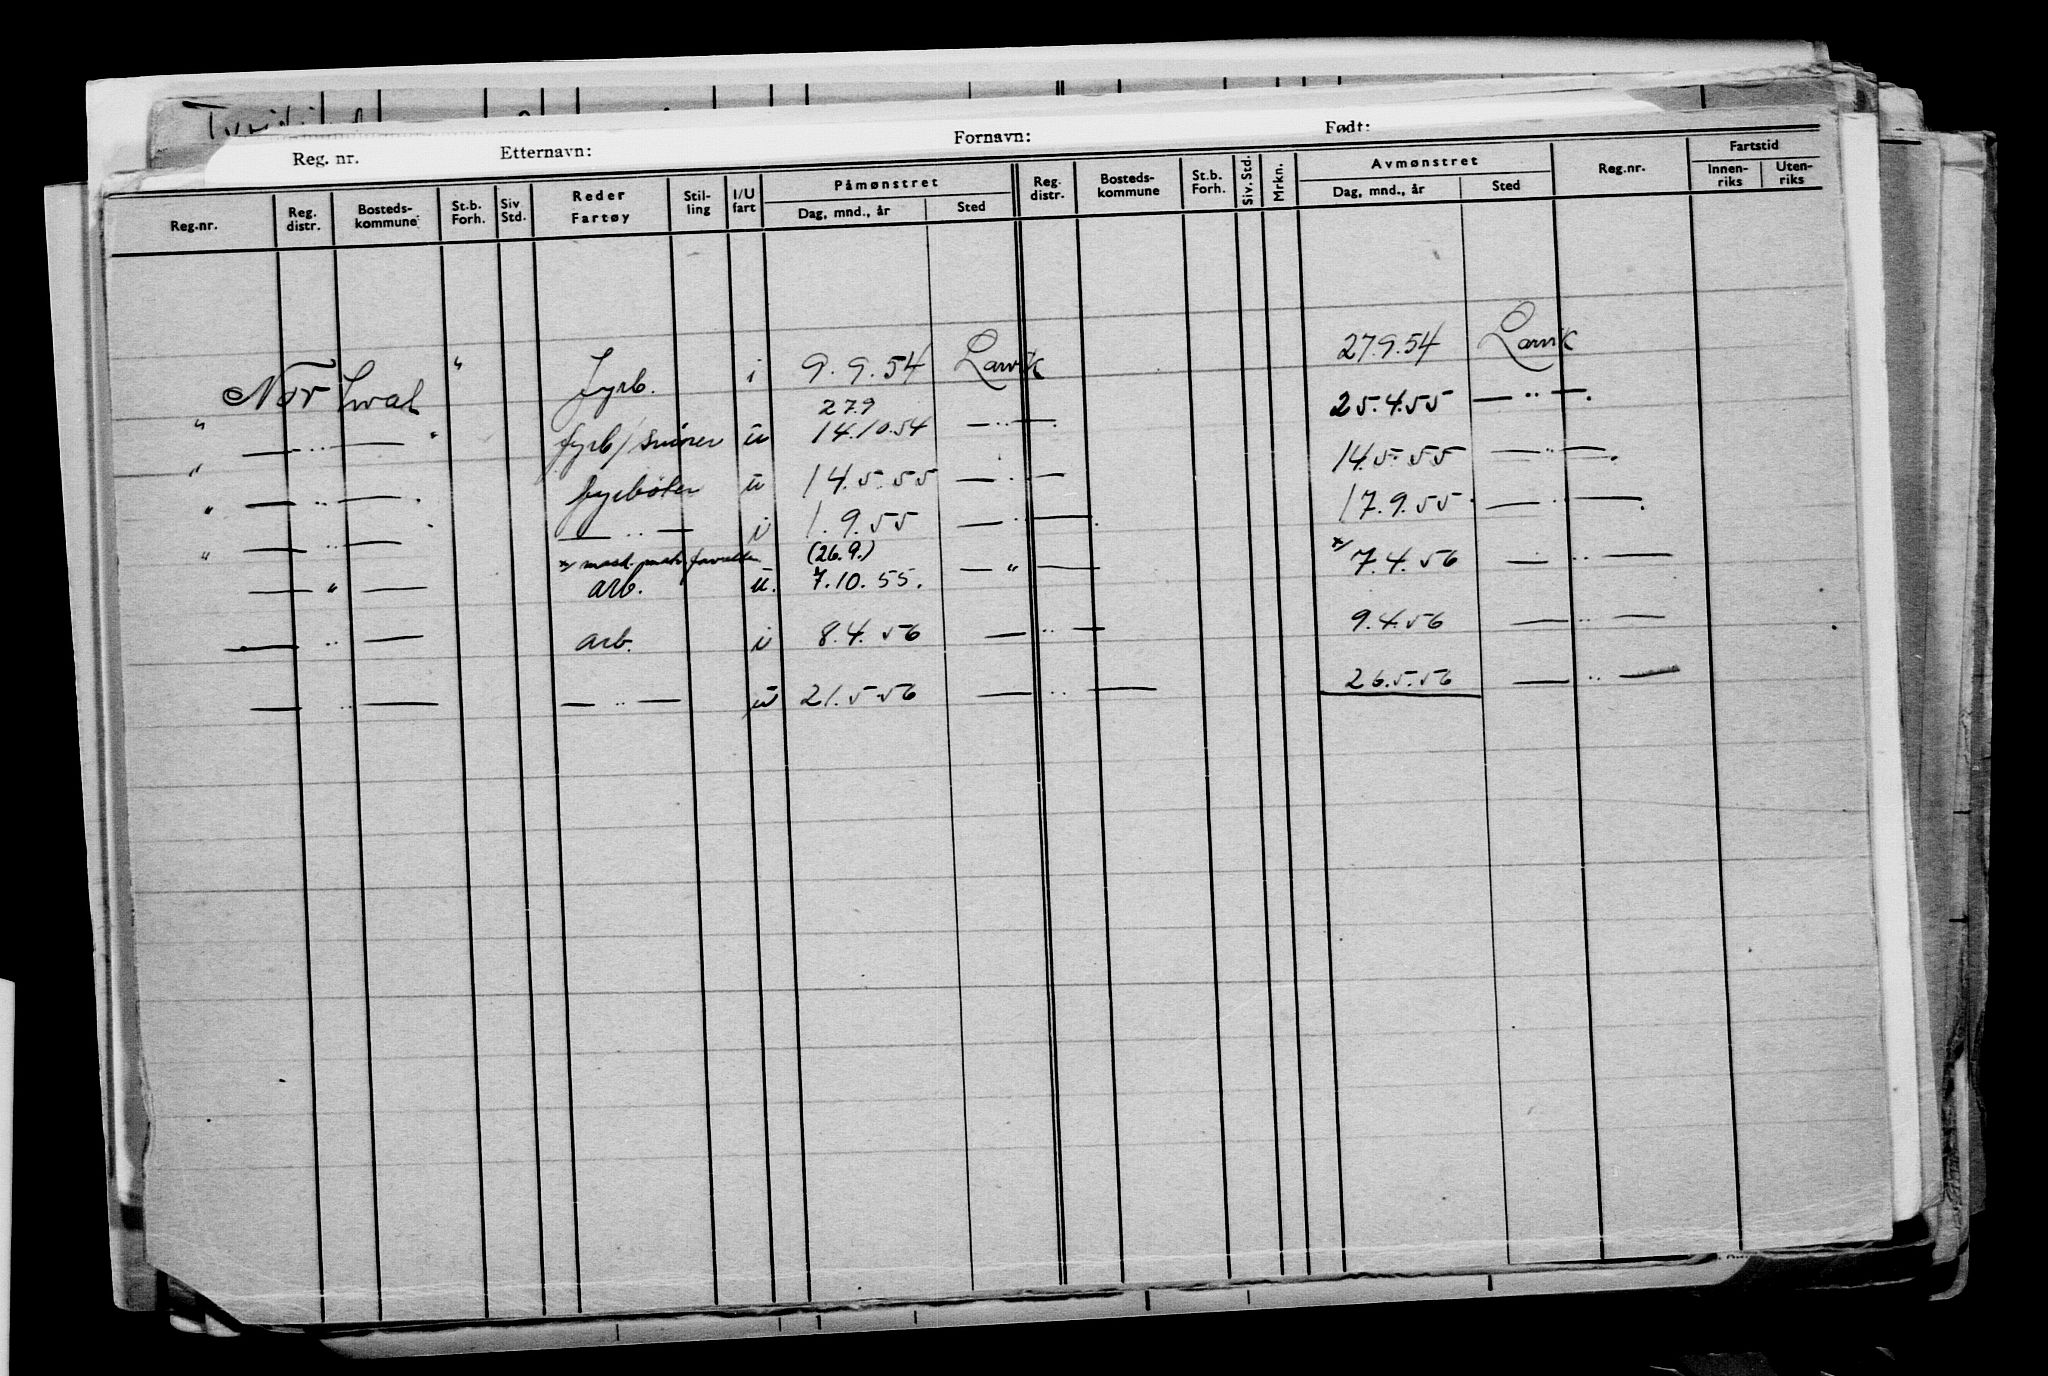 Reg. nr. Etternavn: Fornavn: Født:
Reg.nr. Reg. distr. Bosteds-kommune St.b. Forh. Siv. Std. Reder Fartøy Stil-ling I/U fart Påmønstret Dag, mnd., år Sted Reg. distr. Bosteds-kommune St.b. Forh. Siv. Std. Mrkn. Avmønstret Dag, mnd., år Sted Reg.nr. Fartstid Innen-riks Uten-riks
Norhval " fyrb. i 9.9.54 Larvik 27.9.54 Larvik
27.9
" — " — fyrb/smører u 14.10.54 — " — 25.4.55 — " —
" — " — fyrbøter u 14.5.55 — " — 14.5.55 — " —
" — " — — " — i 1.9.55 — " — 17.9.55 — " —
(26.9.)
" — " — arb. u. 7.10.55. — " — x/ 7.4.56 — " —
— " — arb. i 8.4.56 — " — 9.4.56 — " —
— " — — " — u 21.5.56 — " — 26.5.56 — " —